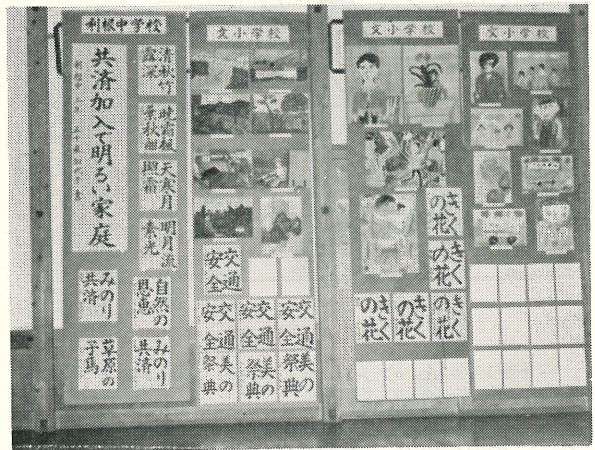 利根中学校
共済加入で明るい家庭
清秋竹
露深
暁霜楓
葉秋
天寒月
照霜
明月流
素光
みのり
共済
自然の
恩恵
草原の
子馬
みのり
共済
文小学校
交通
安全
交通
安全
交通
安全
交通
安全
美の
祭典
美の
祭典
美の
祭典
文小学校
きく
の花
きく
の花
きく
の花
きく
の花
きく
の花
文小学校